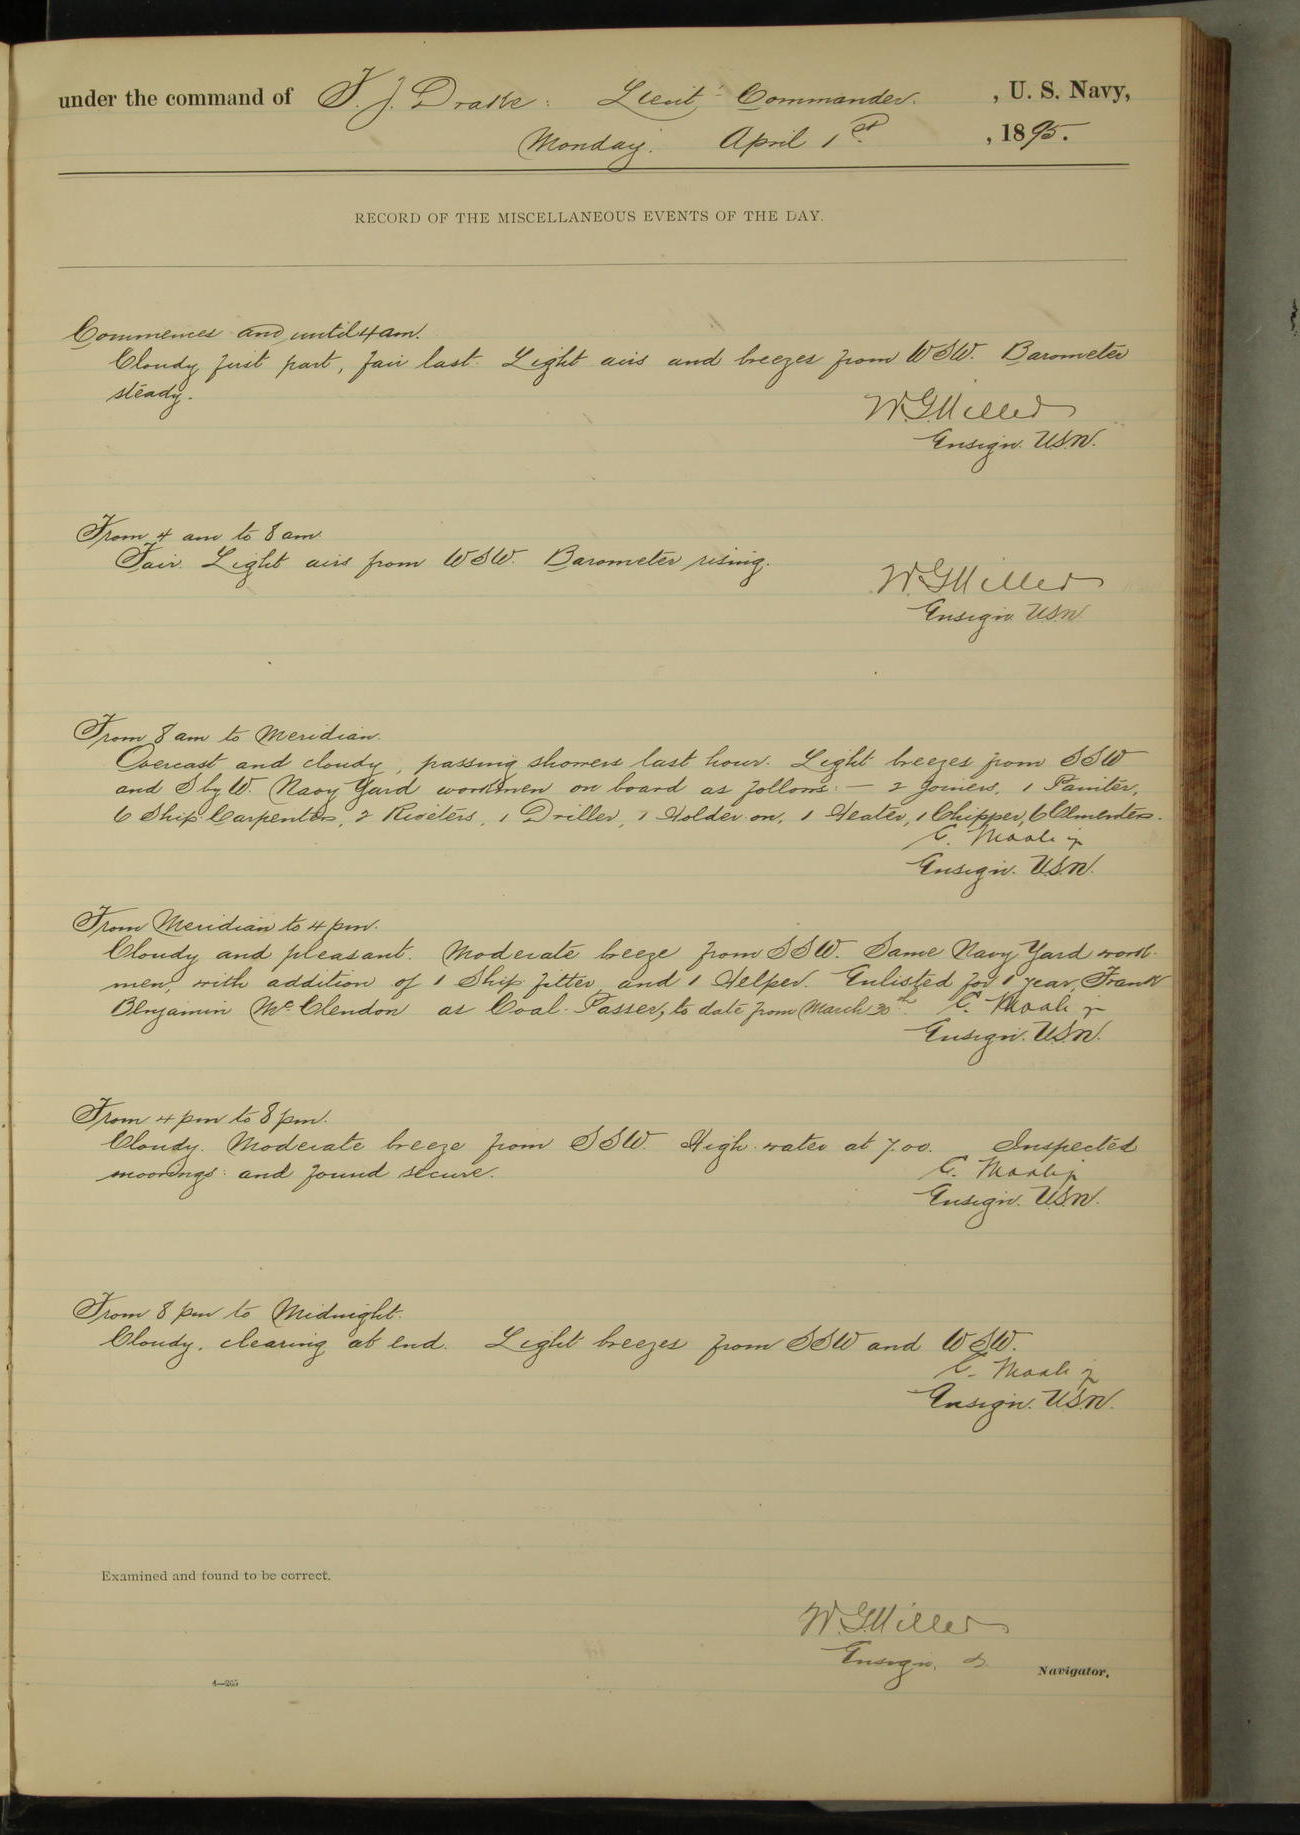 under the command of F. J. Drake: Lieut. Commander. , U. S. Navy,
Monday. April 1st , 1895.
RECORD OF THE MISCELLANEOUS EVENTS OF THE DAY.
Commences and until 4 am.
Cloudy first part, fair last. Light airs and breezes from WSW. Barometer
steady.
W.G. Miller
Ensign. U.S.N.
From 4 am to 8 am
Fair. Light airs from WSW. Barometer rising.
W.G. Miller
Ensign U.S.N.
From 8 am to Meridian.
Overcast and cloudy, passing showers last hour. Light breezes from SSW
and S by W. Navy Yard workmen on board as follows:— 2 Joiners, 1 Painter,
6 Ship Carpenters, 2 Riveters, 1 Driller, 1 Holder on, 1 Heater, 1 Chipper, 6 Cementers.
E. Moale jr
Ensign. U.S.N.
From Meridian to 4 pm.
Cloudy and pleasant. Moderate breeze from SSW. Same Navy Yard work-
men, with addition of 1 Ship fitter and 1 Helper. Enlisted for 1 year, Frank
Benjamin McClendon as Coal Passer, to date from March 30th. E. Moale jr
Ensign. U.S.N.
From 4 pm to 8 pm.
Cloudy. Moderate breeze from SSW. High water at 7.00. Inspected
moorings and found secure.
E. Moale jr
Ensign. U.S.N.
From 8 pm to Midnight.
Cloudy, clearing at end. Light breezes from SSW and WSW.
E. Moale jr
Ensign. U.S.N.
Examined and found to be correct.
W.G. Miller
Ensign, & Navigator.
4—265